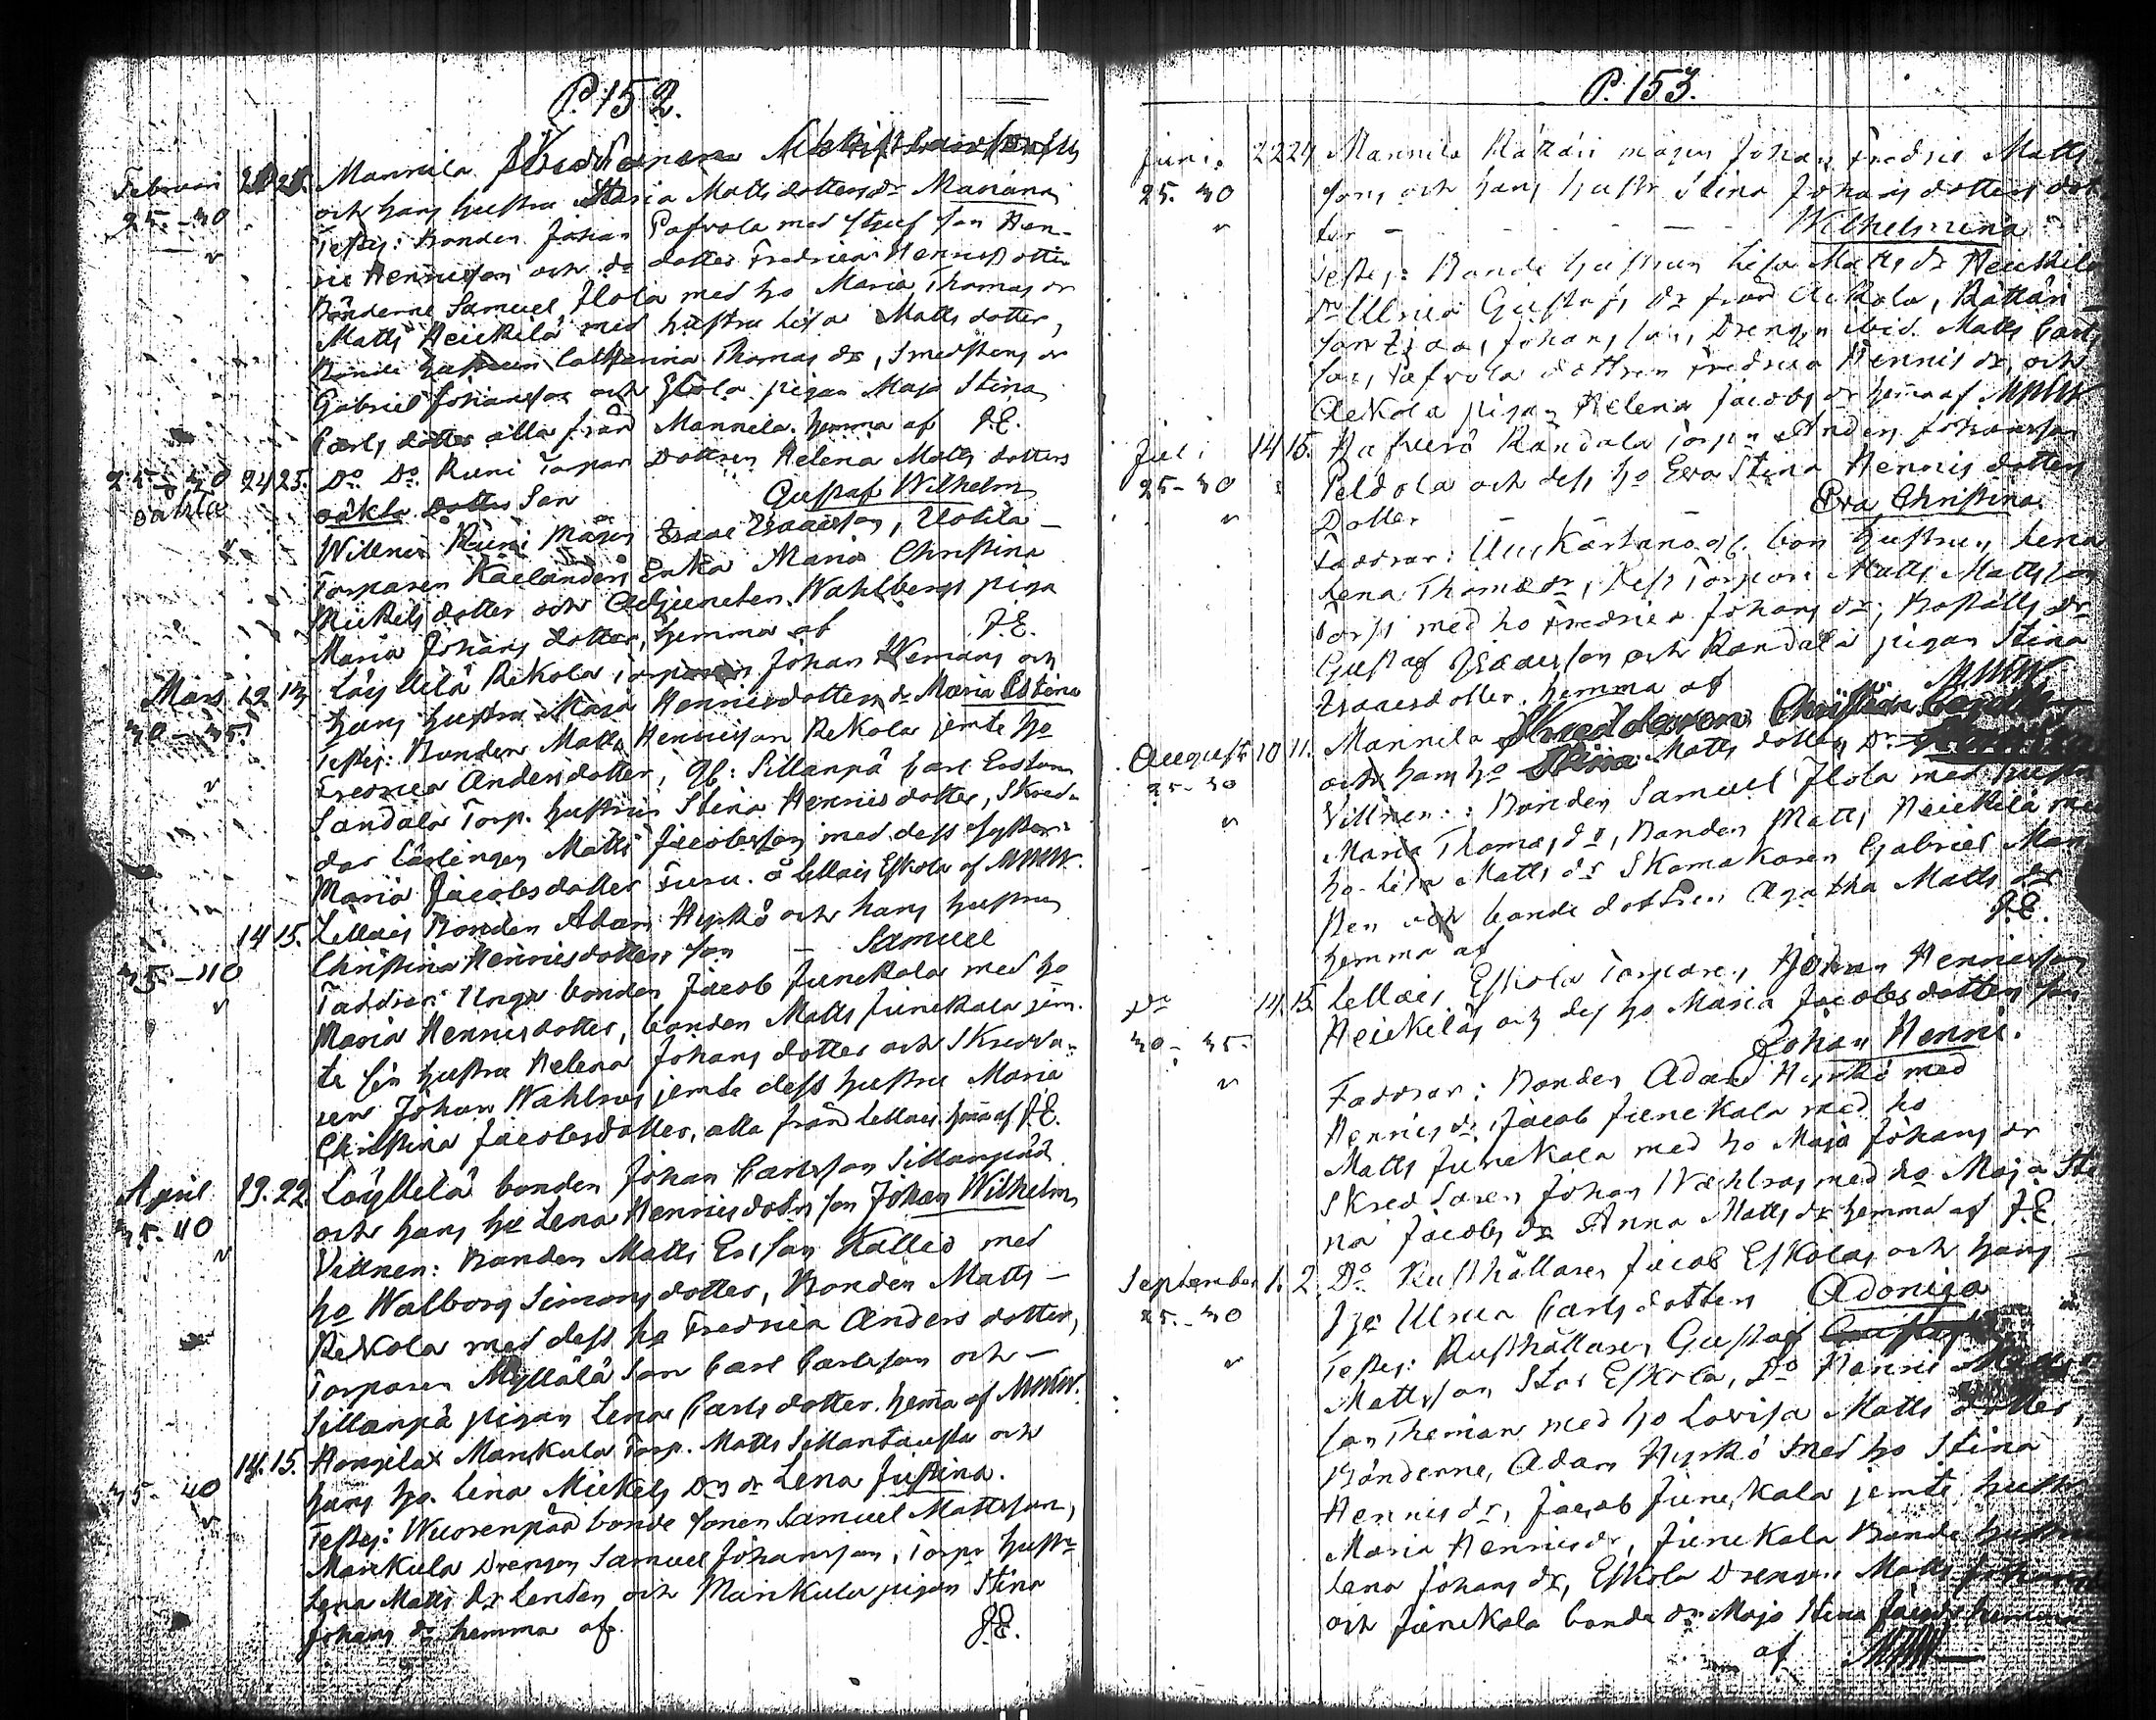 P. 152.
Februari 20 21. Mannila
25.-30 och hans hustru Maria Matts dotters dr Mariana
Testes: Bonden Johan Pafvola med styuf son Hen-
ric Henricson och do dotter Fredrica Henricsdotter
Bönderne Samuel Ilola med ho Maria Thomas dr
Matts Heickilä med hustru Lisa Matts dotter,
Bonde hustrun Catharina Thomas dr, Smedstens dr
Gabriel Johansson och Ilola pigan Maja Stina
Carls dotter alla från Mannila. hemma af J.E.
25-30 24 25. Do Do Runi Torpar Dottren Helena Matts dotters
oäkta oäkta Dotter Son Gustaf Wilhelm
Wittnen Runi Mågen Isaac Isaacsson, Uotila
Torparen Kaelanders Enka Maria Christina
Mickels dotter och Adjuncten Wahlbergs piga
Maria Johans dotter, hemma af J.E.
Mars 12 13 Löyttilä Rekola torparen Johan Hemans och
30-35. hans hustru Maja Henricsdotters dr Maria Stina
Testes: Bonden Matts Henricsson Rekola jemte ho
Fredrica Andersdotter, gf: Sillanpä Carl Ersson
Sandala Torp. hustrun Stina Henricsdotter, Skred-
dar Lärlingen Matts Jacobsson med dess syster
Maria Jacobsdotter Furu. å Lellais Eskola af MWW.
14 15. Lellais Bonden Adam Hyrkö och hans hustru
35-40 Christina Henricsdotters son - Samuel
Faddrar: Unga bonden Jacob Junckala med ho
Maria Henricsdotter, bonden Matts Junckala jem-
te sin hustru Helena Johans dotter och Skredda-
ren Johan Wahlros jemte dess hustru Maria
Christina Jacobsdotter, alla från Lellais. hemma af J.E.
April 19. 22 Löyttilä bonden Johan Carlsson Sillanpää
35.40 och hans ho Lena Henricsdotrs son Johan Wilhelm
Vittnen: Bonden Matts Ersson Kalled med
ho Walborg Simons dotter, Bonden Matts -
Rekola med dess ho Fredrica Anders dotter,
Torparen Myllälä Son Carl Carlsson och -
Sillanpä pigan Lena Carls dotter. hemma af MWW.
14. 15. Hongila Mankula Torp. Matts Sillantausta och
35-40 hans ho. Lena Mickels Drs dr Lena Justina.
Testes: Wuorenpää bonde sonen Samuel Mattsson,
Mankula Drengen Samuel Johansson, Torpr hustr
Lena Matts dr Lenden och Mankula pigan Stina
Johans dr hemma af. J.E.
P. 153.
Juni. 22 24 Mannila Rättäri mågen Johan Fredric Matts
25.30 sons och hans hustr Stina Johans dotters dot
ter - - - - - Wilhelmina
Testes: Bonde hustrun Lisa Matts dr Heickilä
Ulrica Gustafs dr från Aekola, Rättäri
son Isaac Johans son, Drengen ibid. Matts Carls
son, Pafvola dottren Fredrica Henrics dr, och
Aekola pigan Helena Jacobs dr hemma af MWW
Juli 14 15. Hafverö Randala Torpn Anders Johansson
25-30 Peldola och dess ho Eva Stina Henrics dotters
Dotter Eva Christina.
Faddrar: Kärtano gf. Con hustrun Lena
Lena Thomædr, Torpare Matts Mattsson
Torps med ho Fredrica Johans dr, Boställs Dr
Gustaf Isaacsson och Randala pigan Stina
Isaacsdotter. hemma af MWW.
August 10 11. Mannila Christian
25-30 och hans ho Stina Matts dotters Dr
Vittnen: Bonden Samuel Ilola med hustru
Maria Thomas dr, Bonden Matts Heickilä med
ho-Lisa Matts dr Skomakaren Gabriel Man
sten och bonde dottren Agatha Matts dr
hemma af J.E.
Do 14. 15 Lellais Eskola Torparen Johan Henricsson
30-35. Heickiläs och dess ho Maria Jacobsdotters son
Johan Henric.
Faddrar: Bonden Adam Hyrkö med
Henrics dr, Jacob Junckala med ho
Matts Junckala med ho Maja Johans dr
Skreddaren Johan Wahlros med ho Maja Sti
na Jacobs dr Anna Matts dr hemma af J.E.
September 1. 2. Do Rusthållaren Jacob Eskolas och hans -
25.-30 ho Ulrica Carls dotters Adoniga
Testes: Rusthållaren Gustaf
Mattsson Stor Eskola, Do Henric
son Theman med ho Lovisa Matts dotter,
Bönderne, Adam Hyrkö med ho Stina
Henrics dr, Jacob Junckala jemte hustru
Maria Henrics dr, Junckala Bonde hustrun
Lena Johans dr, Eskola Drengen Matts
och Junckala bonde dr Maja Stina Jacobs hemma
af MWW